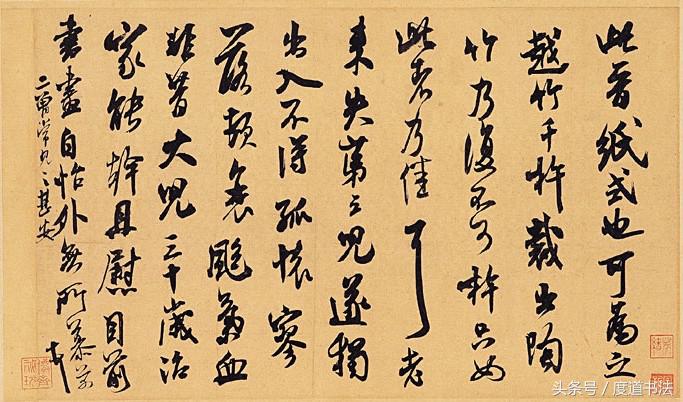 此晉紙式也可為之
越竹千杵裁出陶
竹乃復不可杵只如
此者乃佳耳老
來失第三兒遂獨
出入不得孤懷寥
落頓衰颯氣血
非昔大兒三十歲治
家能幹且慰目前
書畫自怡外無所慕芾
二曾常見之甚安
头条号 / 度道书法